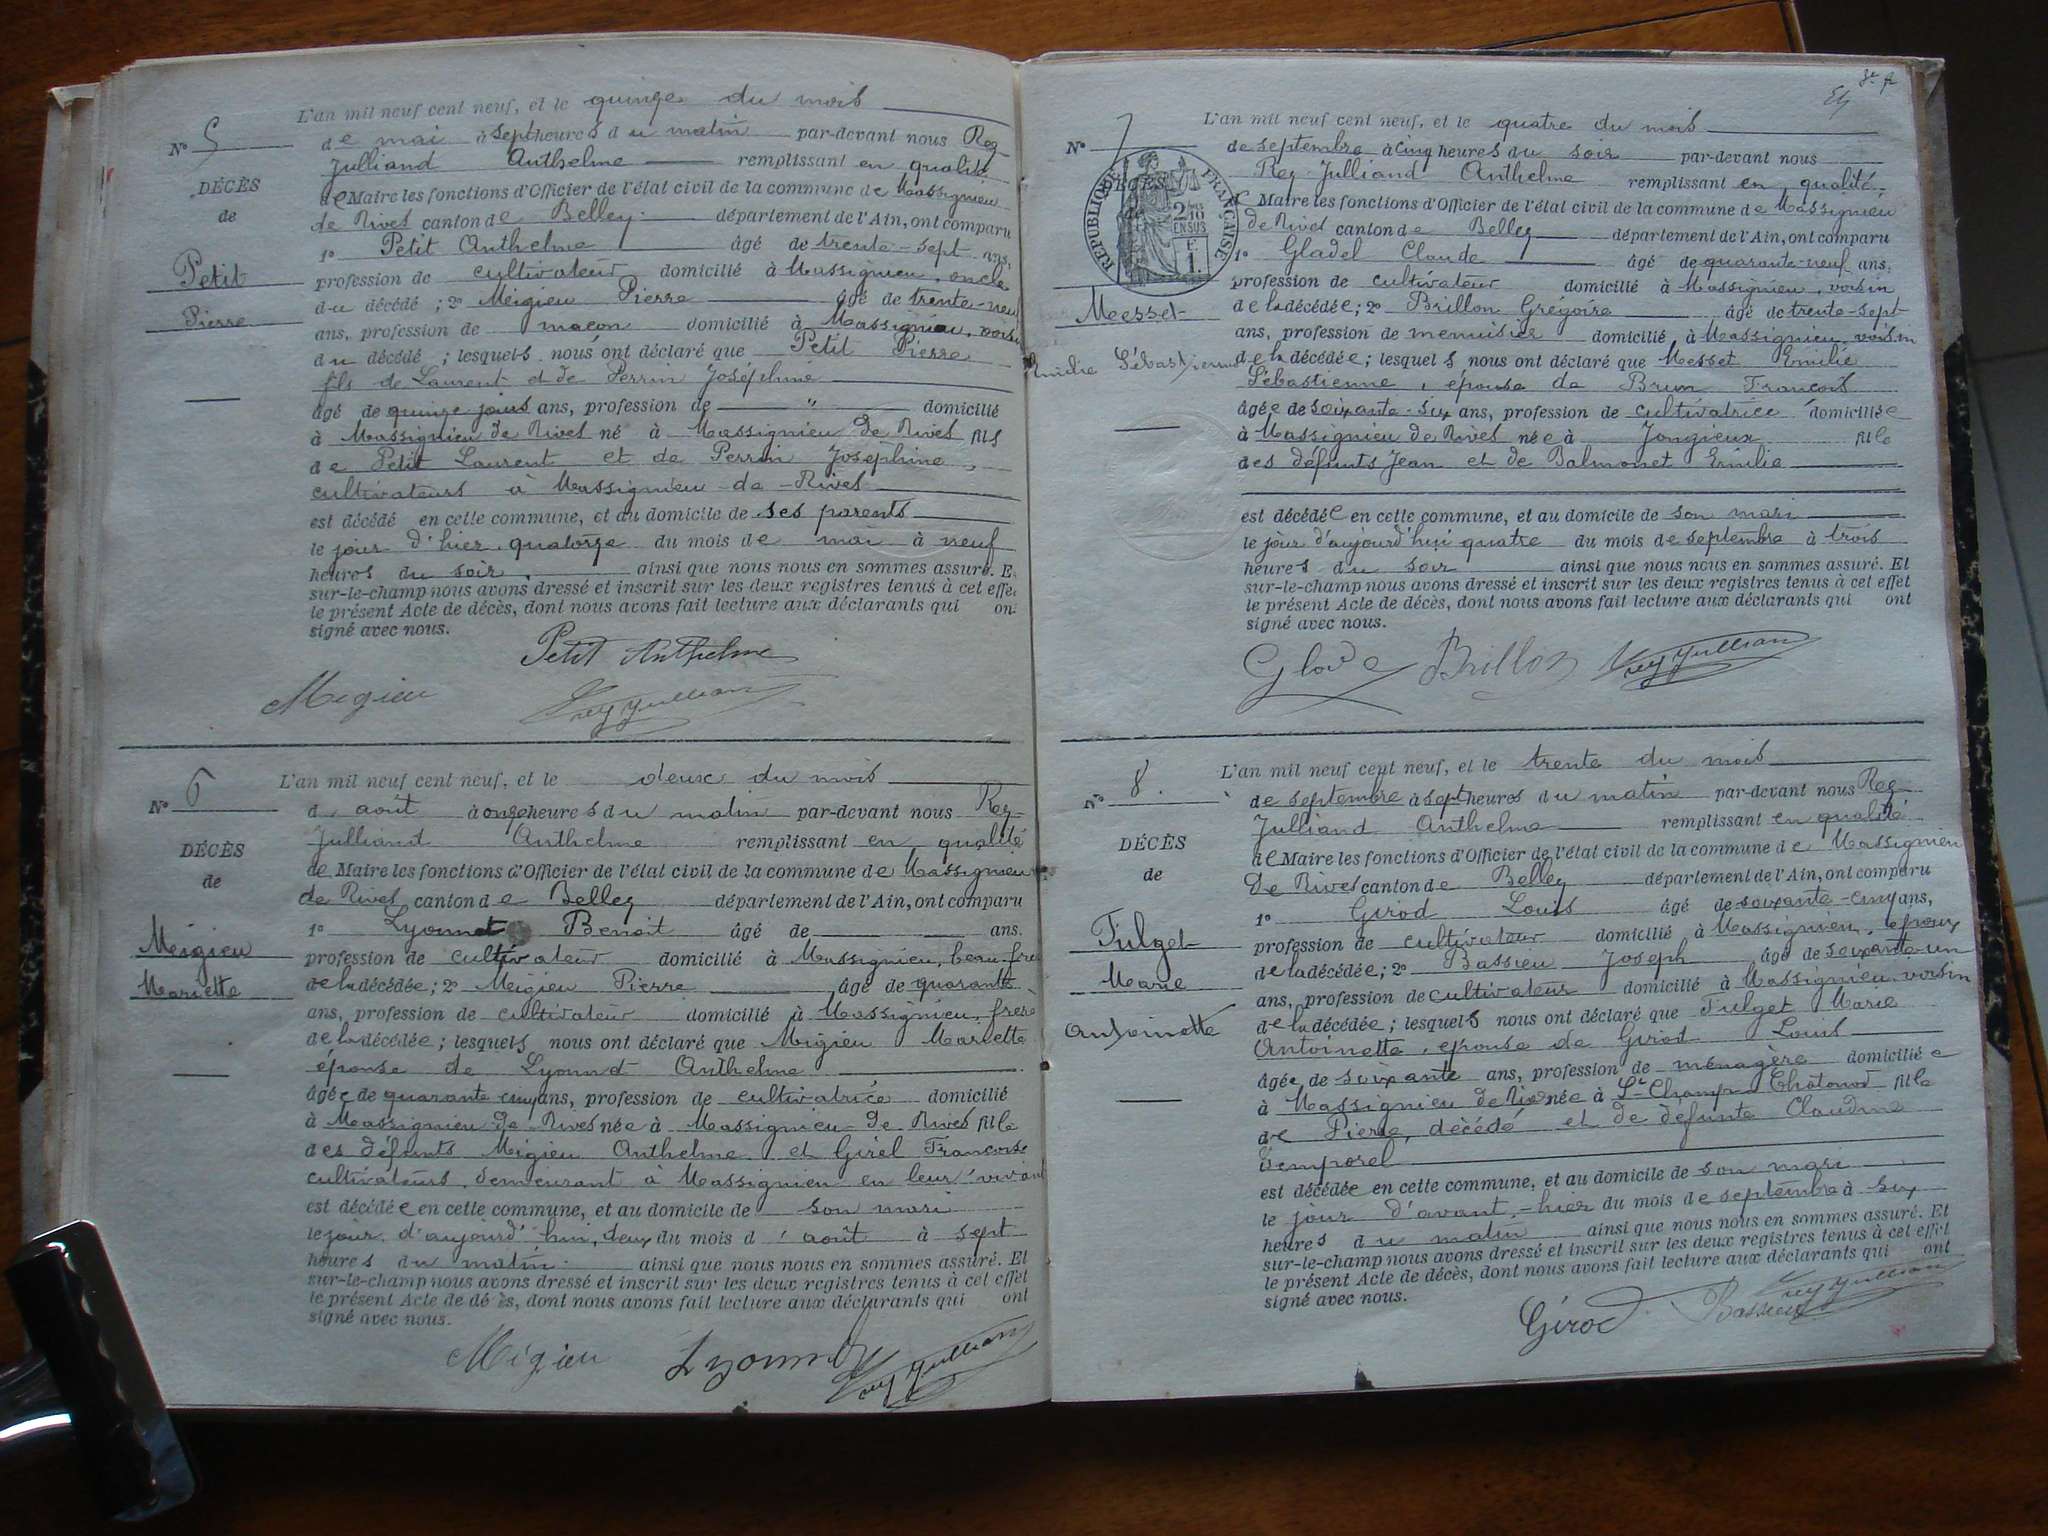 L'an mil neuf cent neuf, et le quinze du mois
N° 5
de mai à sept heures du matin par-devant nous Rey-
Julliand Anthelme remplissant en qualité
DÉCÈS
de Maire les fonctions d'Officier de l'état civil de la commune de Massignieu
de
de Rives canton de Belley département de l'Ain, ont comparu
1° Petit Anthelme âgé de trente-sept ans,
Petit
profession de cultivateur domicilié à Massignieu, oncle
du décédé ; 2° Meigieu Pierre âgé de trente-neuf
Pierre
ans, profession de maçon domicilié à Massignieu, voisin
du décédé ; lesquels nous ont déclaré que Petit Pierre
fils de Laurent et de Perrin Joséphine
âgé de quinze jours ans, profession de " domicilié
à Massignieu de Rives né à Massignieu de Rives fils
de Petit Laurent et de Perrin Joséphine,
cultivateurs à Massignieu-de-Rives
est décédé en cette commune, et au domicile de ses parents
le jour d'hier, quatorze du mois de mai à neuf
heures du soir, ainsi que nous nous en sommes assuré. Et
sur-le-champ nous avons dressé et inscrit sur les deux registres tenus à cet effet
le présent Acte de décès, dont nous avons fait lecture aux déclarants qui ont
signé avec nous.
Petit Anthelme
Migieu Rey Julliand
L'an mil neuf cent neuf, et le deux du mois
N° 6
d'août à onze heures du matin par-devant nous Rey-
Julliand Anthelme remplissant en qualité
DÉCÈS
de Maire les fonctions d'Officier de l'état civil de la commune de Massignieu
de
de Rives canton de Belley département de l'Ain, ont comparu
1° Lyonnet Benoit âgé de ans.
Meigieu
profession de cultivateur domicilié à Massignieu, beau-frère
Mariette
de la décédée ; 2° Meigieu Pierre âgé de quarante
ans, profession de cultivateur domicilié à Massignieu, frère
de la décédée ; lesquels nous ont déclaré que Migieu Mariette
épouse de Lyonnet Anthelme
âgée de quarante cinq ans, profession de cultivatrice domicilié
à Massignieu de Rives née à Massignieu de Rives fille
des défunts Migieu Anthelme et Girel Françoise
cultivateurs, demeurant à Massignieu en leur vivant
est décédée en cette commune, et au domicile de son mari
le jour d'aujourd'hui, deux du mois d'août à sept
heures du matin ainsi que nous nous en sommes assuré. Et
sur-le-champ nous avons dressé et inscrit sur les deux registres tenus à cet effet
le présent Acte de décès, dont nous avons fait lecture aux déclarants qui ont
signé avec nous.
Migieu Lyonnet Rey Julliand
L'an mil neuf cent neuf, et le quatre du mois
N° 7
de septembre à cinq heures du soir par-devant nous
Rey-Julliand Anthelme remplissant en qualité
DÉCÈS
RÉPUBLIQUE FRANÇAISE
2/10 EN SUS
1 F.
de Maire les fonctions d'Officier de l'état civil de la commune de Massignieu
de
de Rives canton de Belley département de l'Ain, ont comparu
1° Gladel Claude âgé de quarante-neuf ans.
profession de cultivateur domicilié à Massignieu, voisin
Messet
de la décédée ; 2° Brillon Grégoire âgé de trente-sept
ans, profession de menuisier domicilié à Massignieu, voisin
Emilie Sébastienne
de la décédée ; lesquels nous ont déclaré que Messet Emilie
Sébastienne, épouse de Brun François
âgée de soixante-six ans, profession de cultivatrice domiciliée
à Massignieu de Rives née à Jongieux fille
des défunts Jean et de Balmonet Emilie
est décédée en cette commune, et au domicile de son mari
le jour d'aujourd'hui quatre du mois de septembre à trois
heures du soir ainsi que nous nous en sommes assuré. Et
sur-le-champ nous avons dressé et inscrit sur les deux registres tenus à cet effet
le présent Acte de décès, dont nous avons fait lecture aux déclarants qui ont
signé avec nous.
Brillon Rey Julliand
L'an mil neuf cent neuf, et le trente du mois
N° 8.
de septembre à sept heures du matin par-devant nous Rey-
Julliand Anthelme remplissant en qualité
DÉCÈS
de Maire les fonctions d'Officier de l'état civil de la commune de Massignieu
de
de Rives canton de Belley département de l'Ain, ont comparu
1° Girod Louis âgé de soixante-cinq ans,
Fulget
profession de cultivateur domicilié à Massignieu, époux
de la décédée ; 2° Bassieu Joseph âgé de soixante-un
Marie
ans, profession de cultivateur domicilié à Massignieu, voisin
Antoinette
de la décédée ; lesquels nous ont déclaré que Fulget Marie
Antoinette, épouse de Girod Louis
âgée de soixante ans, profession de ménagère domiciliée
à Massignieu de Rives née à St Champ-Chatonod fille
de Pierre, décédé et de défunte Claudine
Vemporel
est décédée en cette commune, et au domicile de son mari
le jour d'avant-hier du mois de septembre à six
heures du matin ainsi que nous nous en sommes assuré. Et
sur-le-champ nous avons dressé et inscrit sur les deux registres tenus à cet effet
le présent Acte de décès, dont nous avons fait lecture aux déclarants qui ont
signé avec nous.
Girod Bassieu Rey Julliand